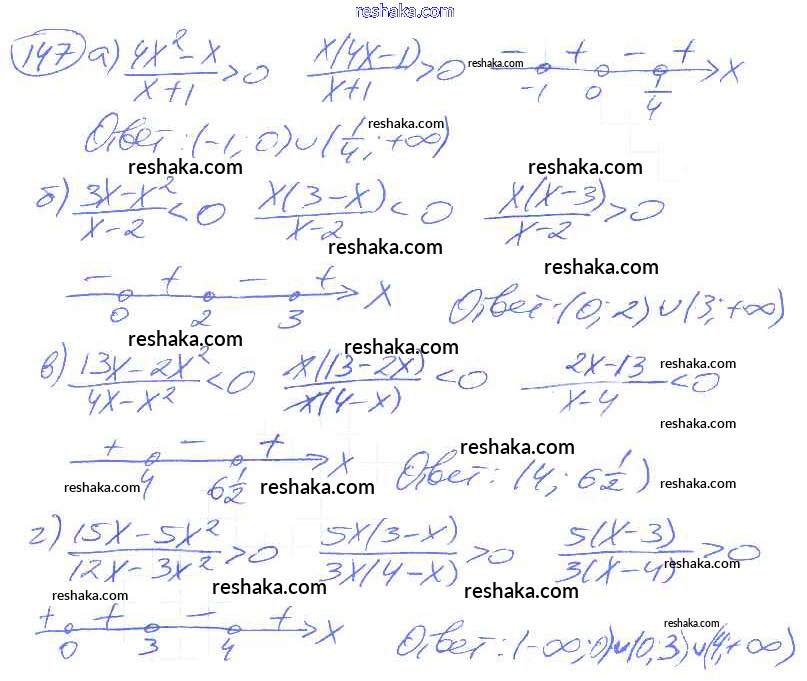 reshaka.com
147 а) (4x² - x)/(x+1) > 0   x(4x-1)/(x+1) > 0   reshaka.com   - + - + x
-1 0 1/4
Ответ: (-1; 0) ∪ (1/4; +∞) reshaka.com
reshaka.com reshaka.com
б) (3x-x²)/(x-2) < 0   x(3-x)/(x-2) < 0   x(x-3)/(x-2) > 0
reshaka.com reshaka.com
- + - + x
0 2 3 Ответ: (0; 2) ∪ (3; +∞)
reshaka.com reshaka.com
в) (13x-2x²)/(4x-x²) < 0   x(13-2x)/x(4-x) < 0   (2x-13)/(x-4) < 0 reshaka.com
reshaka.com
+ - + x reshaka.com
4 6 1/2 Ответ: (4; 6 1/2) reshaka.com
reshaka.com reshaka.com
г) (15x-5x²)/(12x-3x²) > 0   5x(3-x)/3x(4-x) > 0   5(x-3)/3(x-4) > 0
reshaka.com reshaka.com reshaka.com
reshaka.com
+ + - + x reshaka.com
0 3 4 Ответ: (-∞; 0) ∪ (0, 3) ∪ (4; +∞)